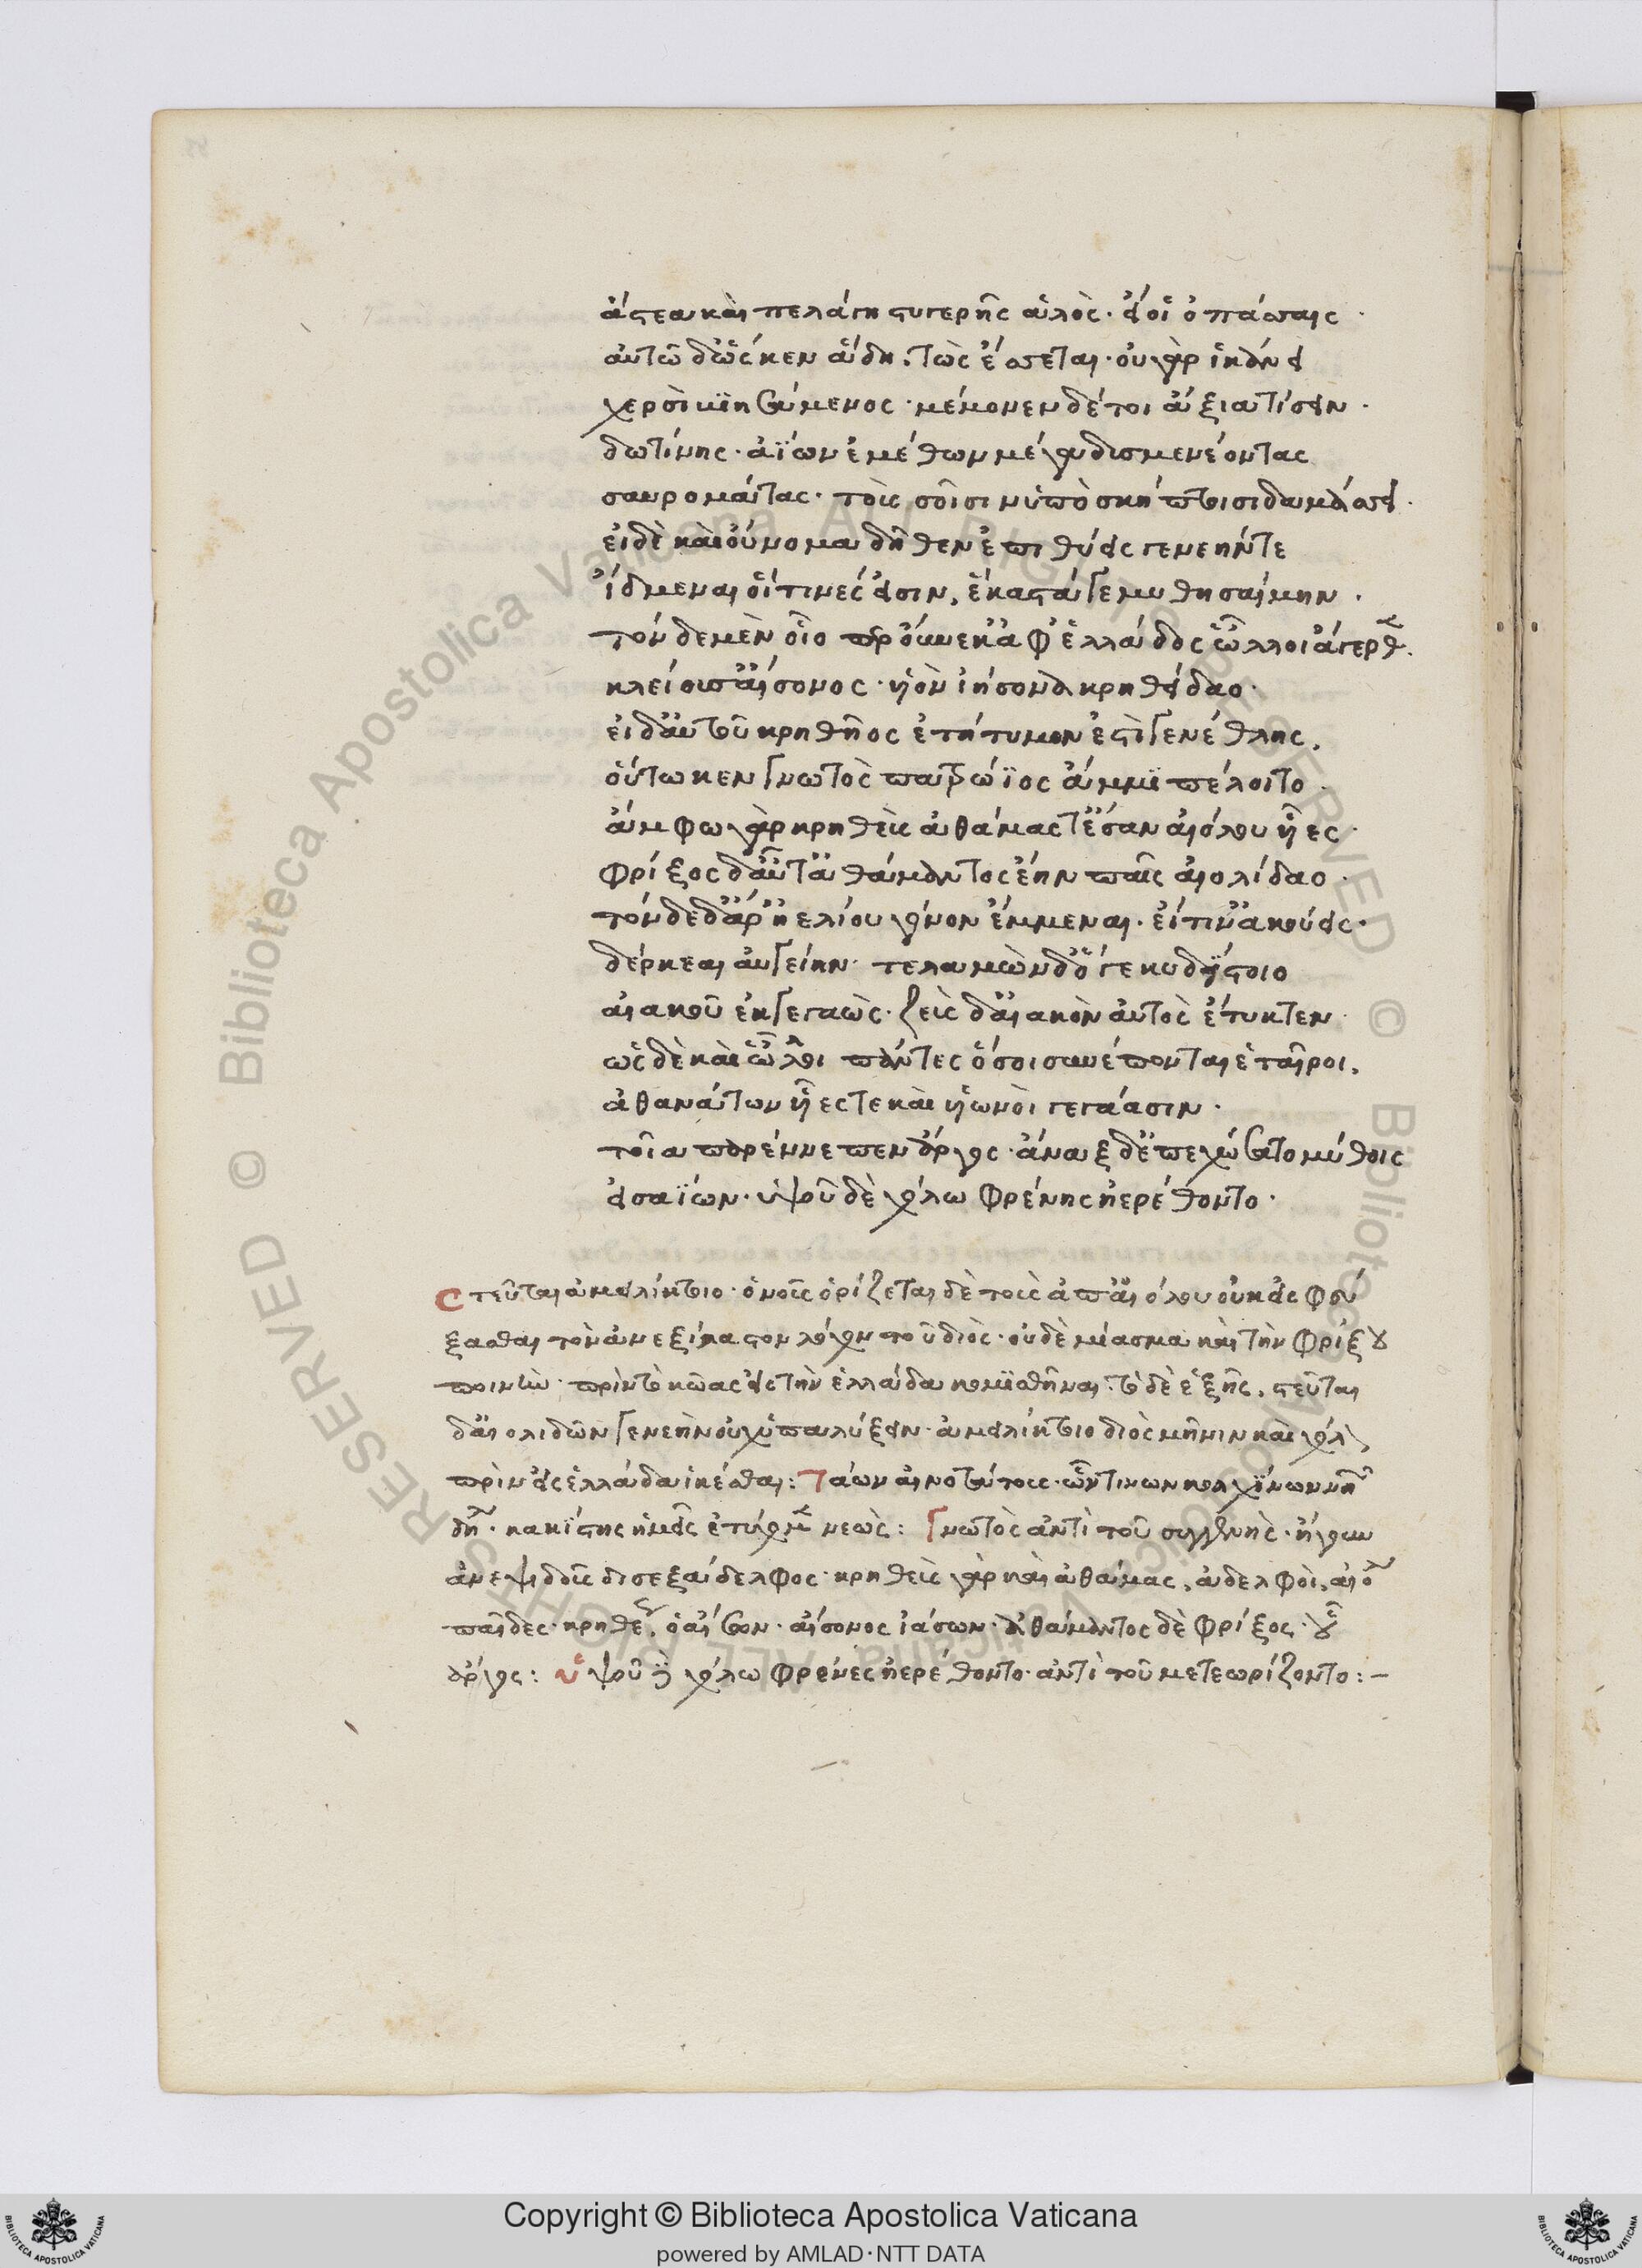 ἄστεα καὶ πελάγη στυγερῆς ἁλὸς· εἴ οἱ ὀπάσσαις·
αὐτῶ δ' ὥς κεν ἅδη, τὼς ἔσσεται· οὐ γὰρ ἱκάνει
χερσὶ βιησόμενος· μέμονεν δέ τοι ἄξια τίσειν·
δωτίνης· ἀΐων ἐμέθεν μέγα δυσμενέοντας
σαυρομάτας· τοὺς σοῖσιν ὑπὸ σκήπτροισι δαμάσσει·
εἰ δὲ καὶ οὔνομα δῆθεν ἐπιθύεις γενεήν τε
ἴδμεναι οἵ τινές εἰσιν, ἕκαστά γε μυθησαίμην·
τόνδε μὲν οἷο πρ οὕνεκ' ἀφ' ἑλλάδος ὧλλοι ἄγερθεν·
κλείουσ' αἴσονος υἱὸν ἰήσονα κρηθεΐδαο·
εἰ δ' αὐτοῦ κρηθῆος ἐτήτυμον ἐστὶ γενέθλης,
οὕτω κεν γνωτὸς πατρώϊος ἄμμι πέλοιτο·
ἄμφω γὰρ κρηθεὺς ἀθάμας τ' ἔσαν αἰόλου υἷες·
φρίξος δ' αὖτ' ἀθάμαντος ἔην παῖς αἰολίδαο·
τόνδε δ' ἄρ' ἠελίου γόνον ἔμμεναι· εἴ τιν' ἀκούεις·
δέρκεαι αὐγείην· τελαμὼν δ' ὅγε κυδίστοιο
αἰακοῦ ἐκγεγαὼς· ζεὺς δ' αἰακὸν αὐτὸς ἔτικτεν·
ὣς δὲ καὶ ὧλλοι πάντες ὅσοι συνέπονται ἑταῖροι,
ἀθανάτων υἷές τε καὶ υἱωνοὶ γεγάασιν·
τοῖα παρέννεπεν ἄργος· ἄναξ δ' ἐπεχώσατο μύθοις
εἰσαΐων· ὑψοῦ δὲ χόλω φρένες ἠερέθοντο·
στεῦται ἀμειλίκτοιο· ὁ νοῦς ὁρίζεται δὲ τοὺς ἀπ' αἰόλου οὐκ εἰς φεύ
ξασθαι τὸν ἀνεξίλαστον χόλον τοῦ διὸς· οὐδὲ μίασμα καὶ τὴν φρίξου
ποινὴν· πρὶν τὸ κῶας εἰς τὴν ἑλλάδα κομισθῆναι· τὸ δὲ ἑξῆς, στεῦται
δ' αἰολιδῶν γενεὴν οὐχ ὑπαλύξειν· ἀμειλίκτοιο διὸς μῆνιν καὶ χόλ
πρὶν εἰς ἑλλάδα ἱκέσθαι: τάων αἰνοτάτοις· ὧν τινων κολχικῶν νηῶν
δὴ· κακίστης ἡμεῖς ἐτύχομεν νεὼς: γνωτὸς ἀντὶ τοῦ συγγενὴς· ἤγουν
ἀνεψιαδοῦς δισεξάδελφος· κρηθεὺς γὰρ καὶ ἀθάμας, ἀδελφοὶ, αἰόλου
παῖδες· κρηθέως, ὁ αἴσων· αἴσονος ἰάσων· ἀθάμαντος δὲ φρίξος· οὗ
ἄργος: ὑψοῦ δὲ χόλω φρένες ἠερέθοντο· ἀντὶ τοῦ μετεωρίζοντο:-
© Biblioteca Apostolica Vaticana ALL RIGHTS RESERVED © Biblioteca Apostolica Vaticana ALL RIGHTS RESERVED
Copyright © Biblioteca Apostolica Vaticana
powered by AMLAD·NTT DATA